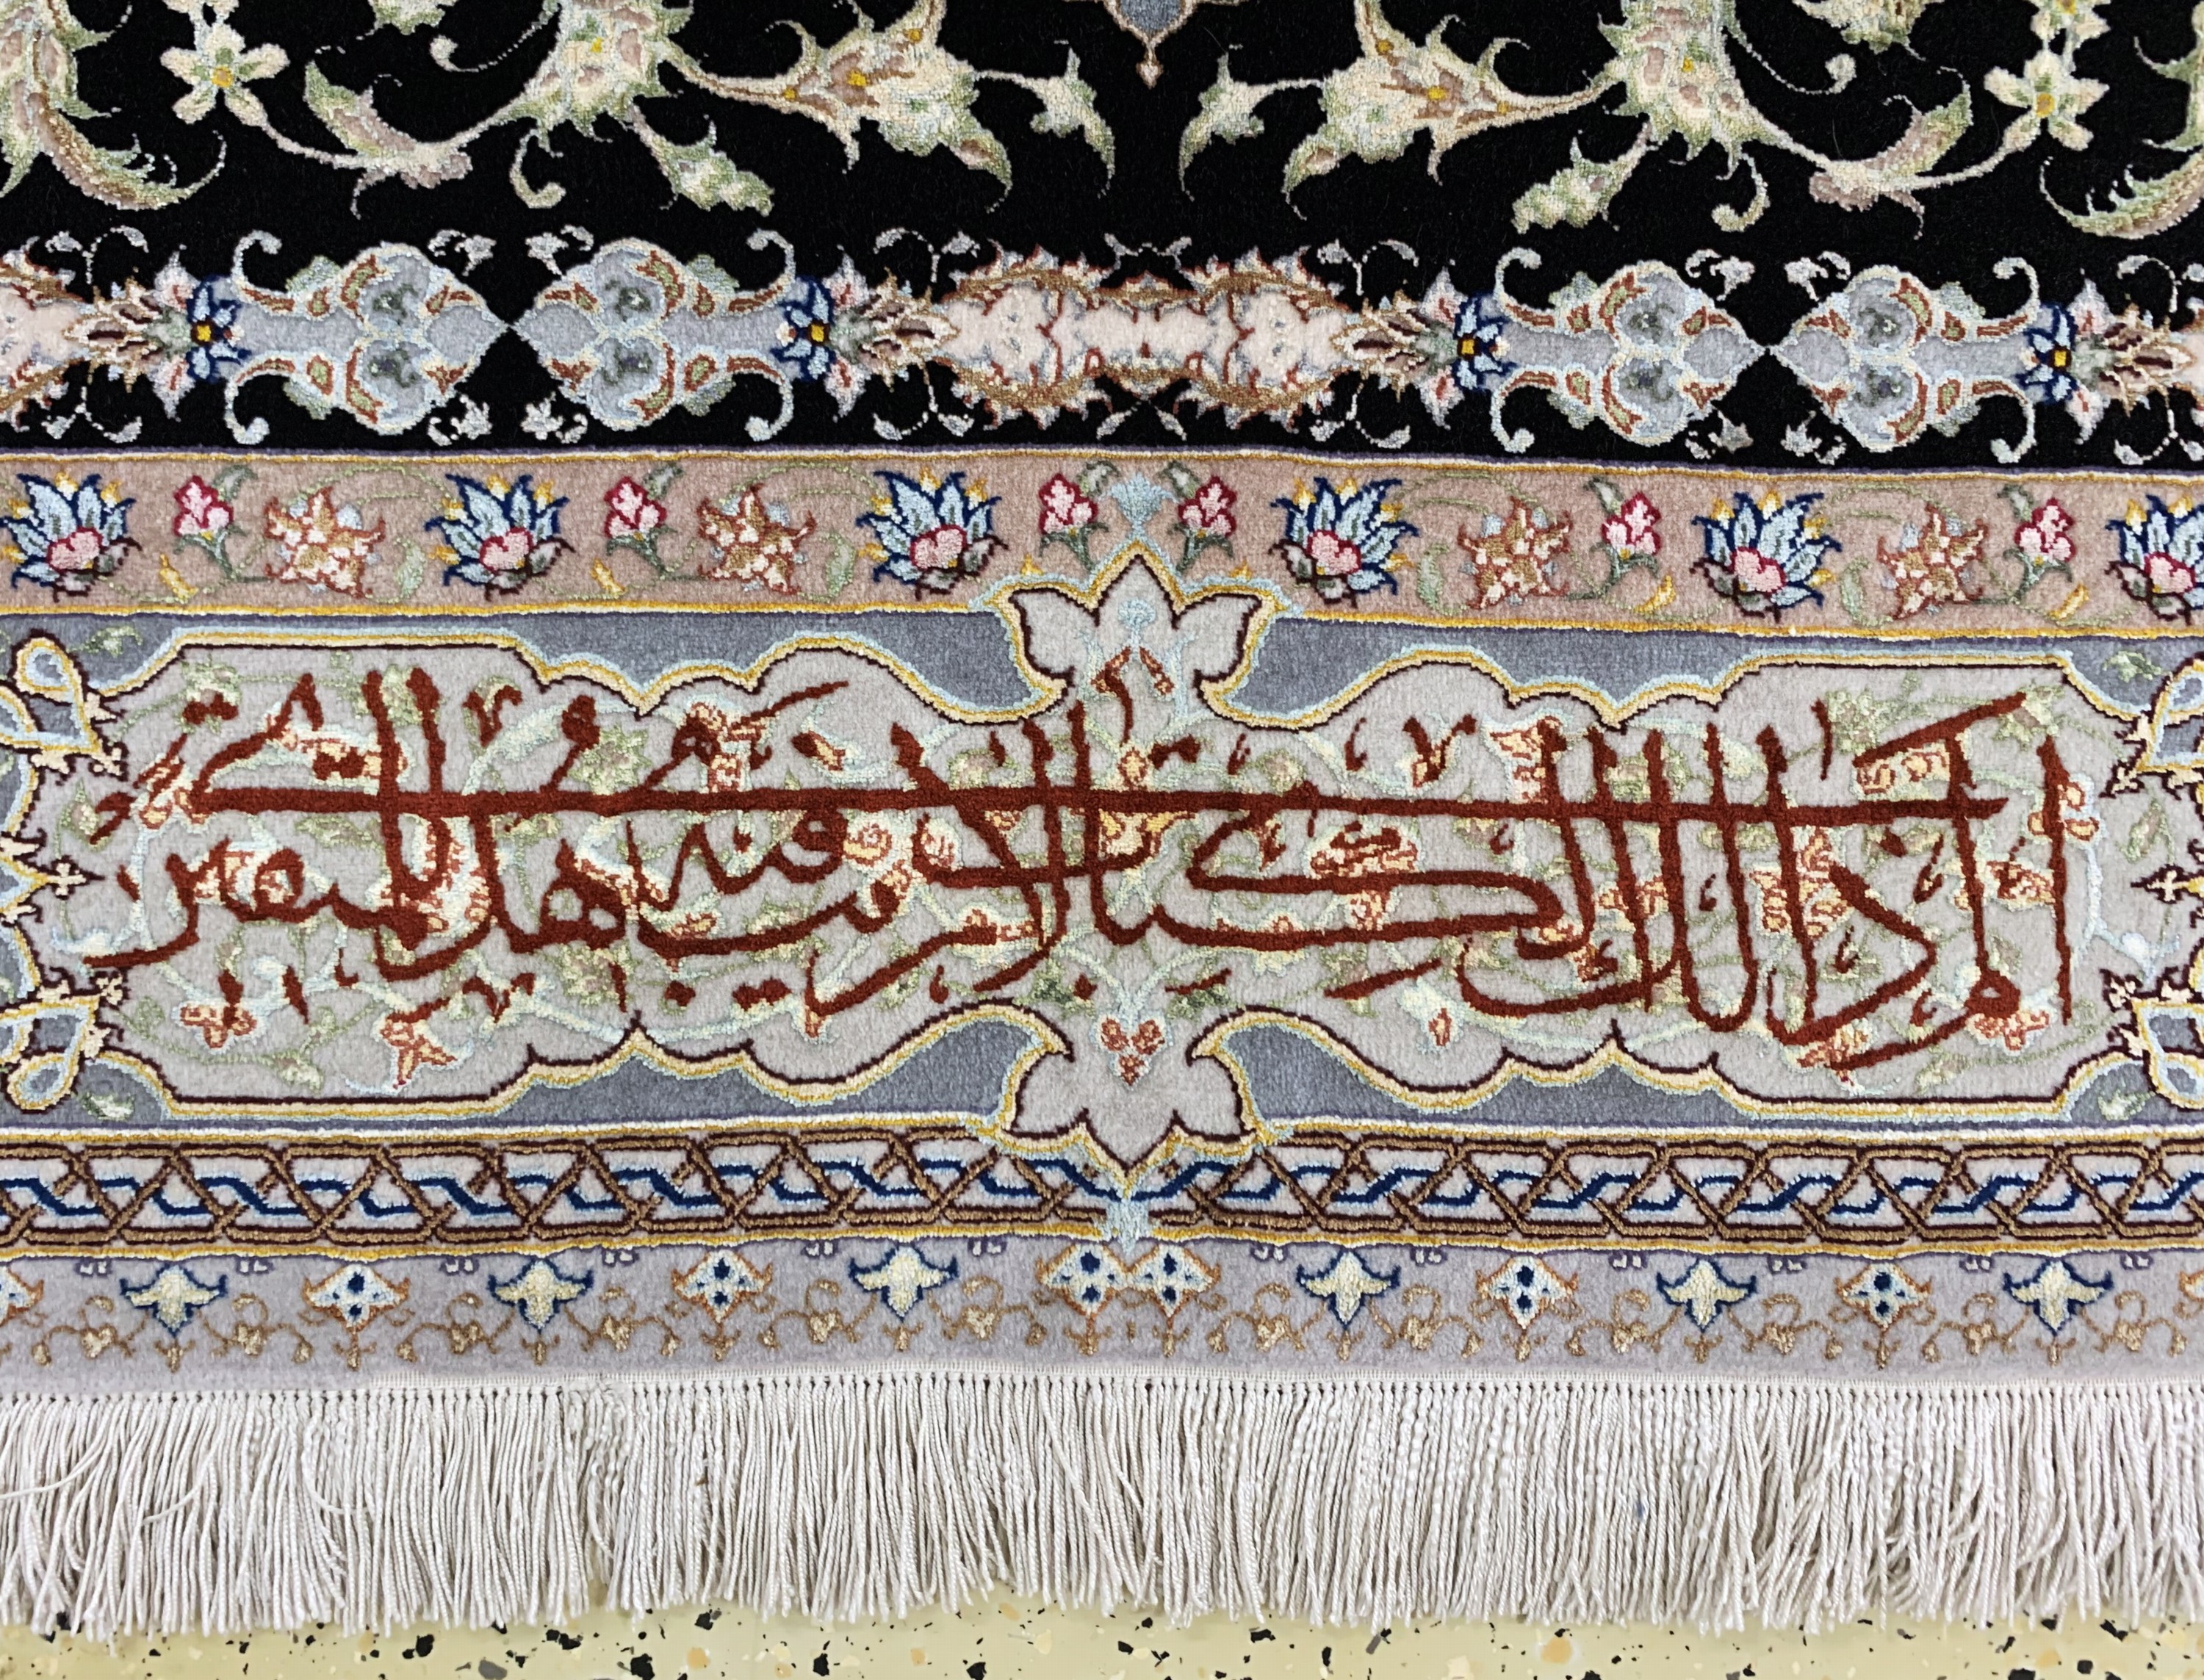 الم ذلك الكتاب لا ريب فيه هدى للمتقين